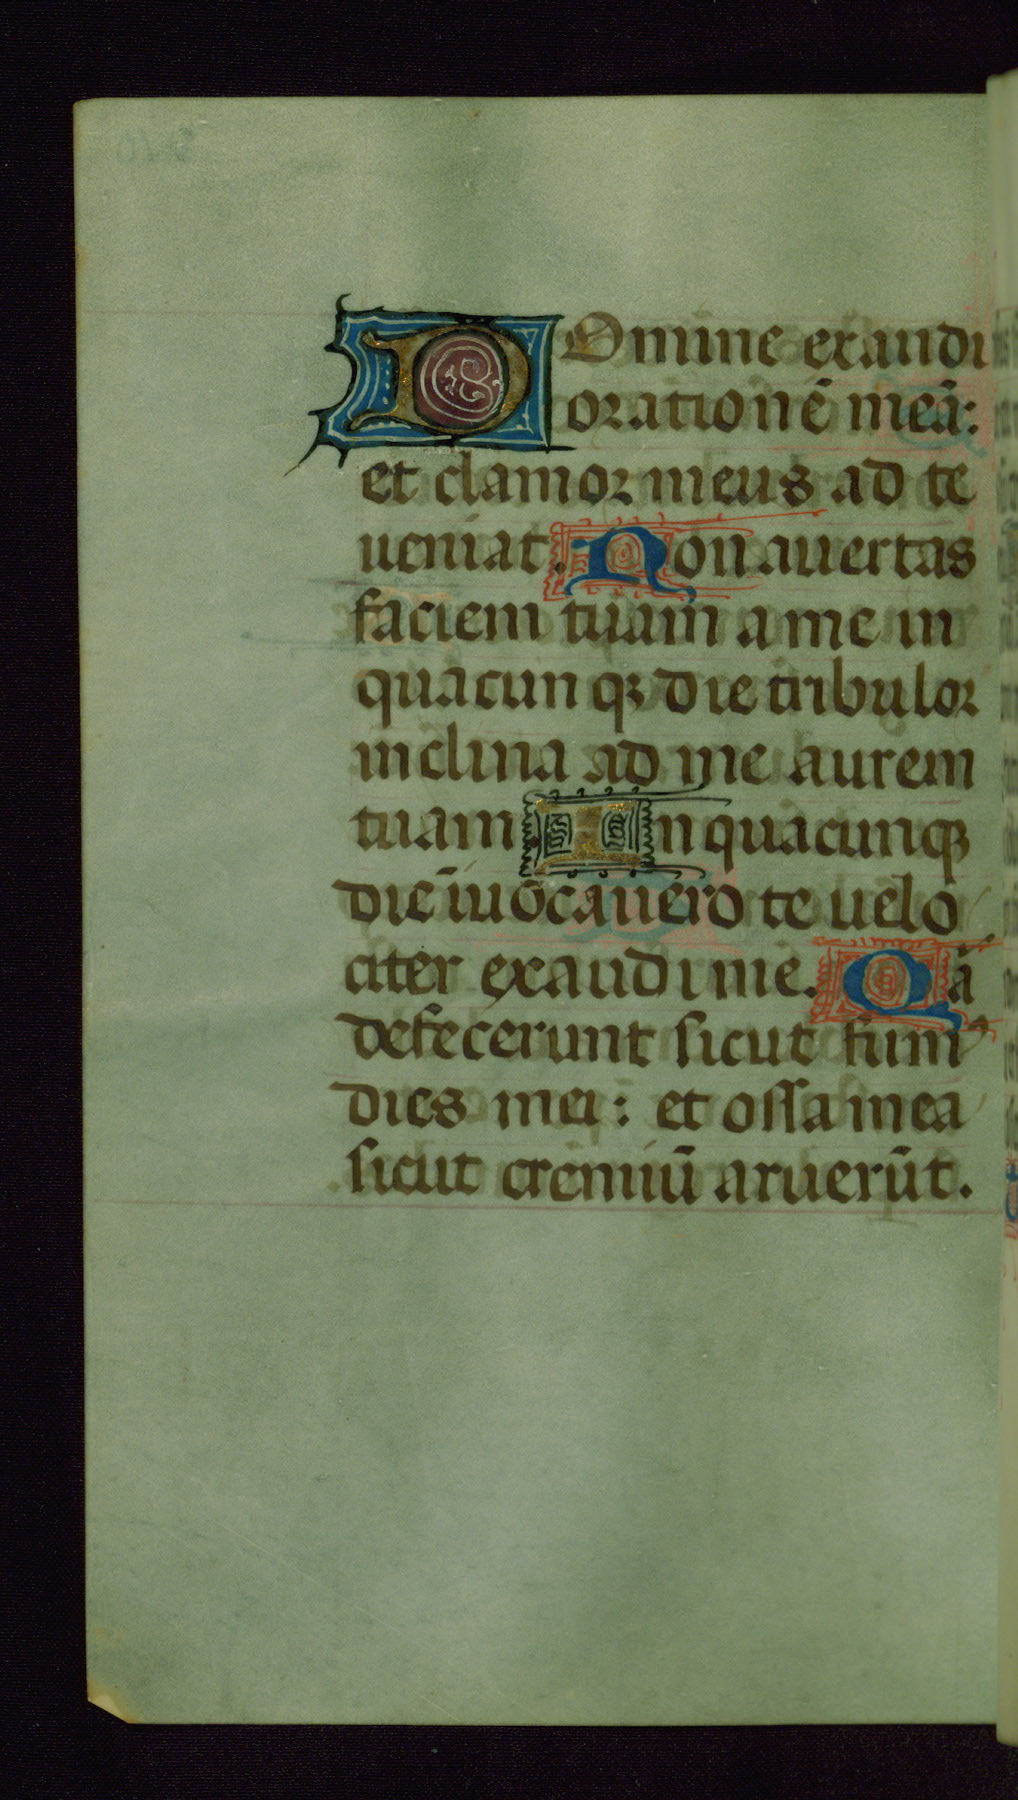 DOmine exaudi
orationē meā:
et clamor meus ad te
ueniat. Non auertas
faciem tuam a me in
quacunqꝫ die tribulor
inclina ad me aurem
tuam. In quacunqꝫ
die īuocauero te uelo
citer exaudi me. Qā
defecerunt sicut fumꝰ
dies mei: et ossa mea
sicut cremiū aruerūt.